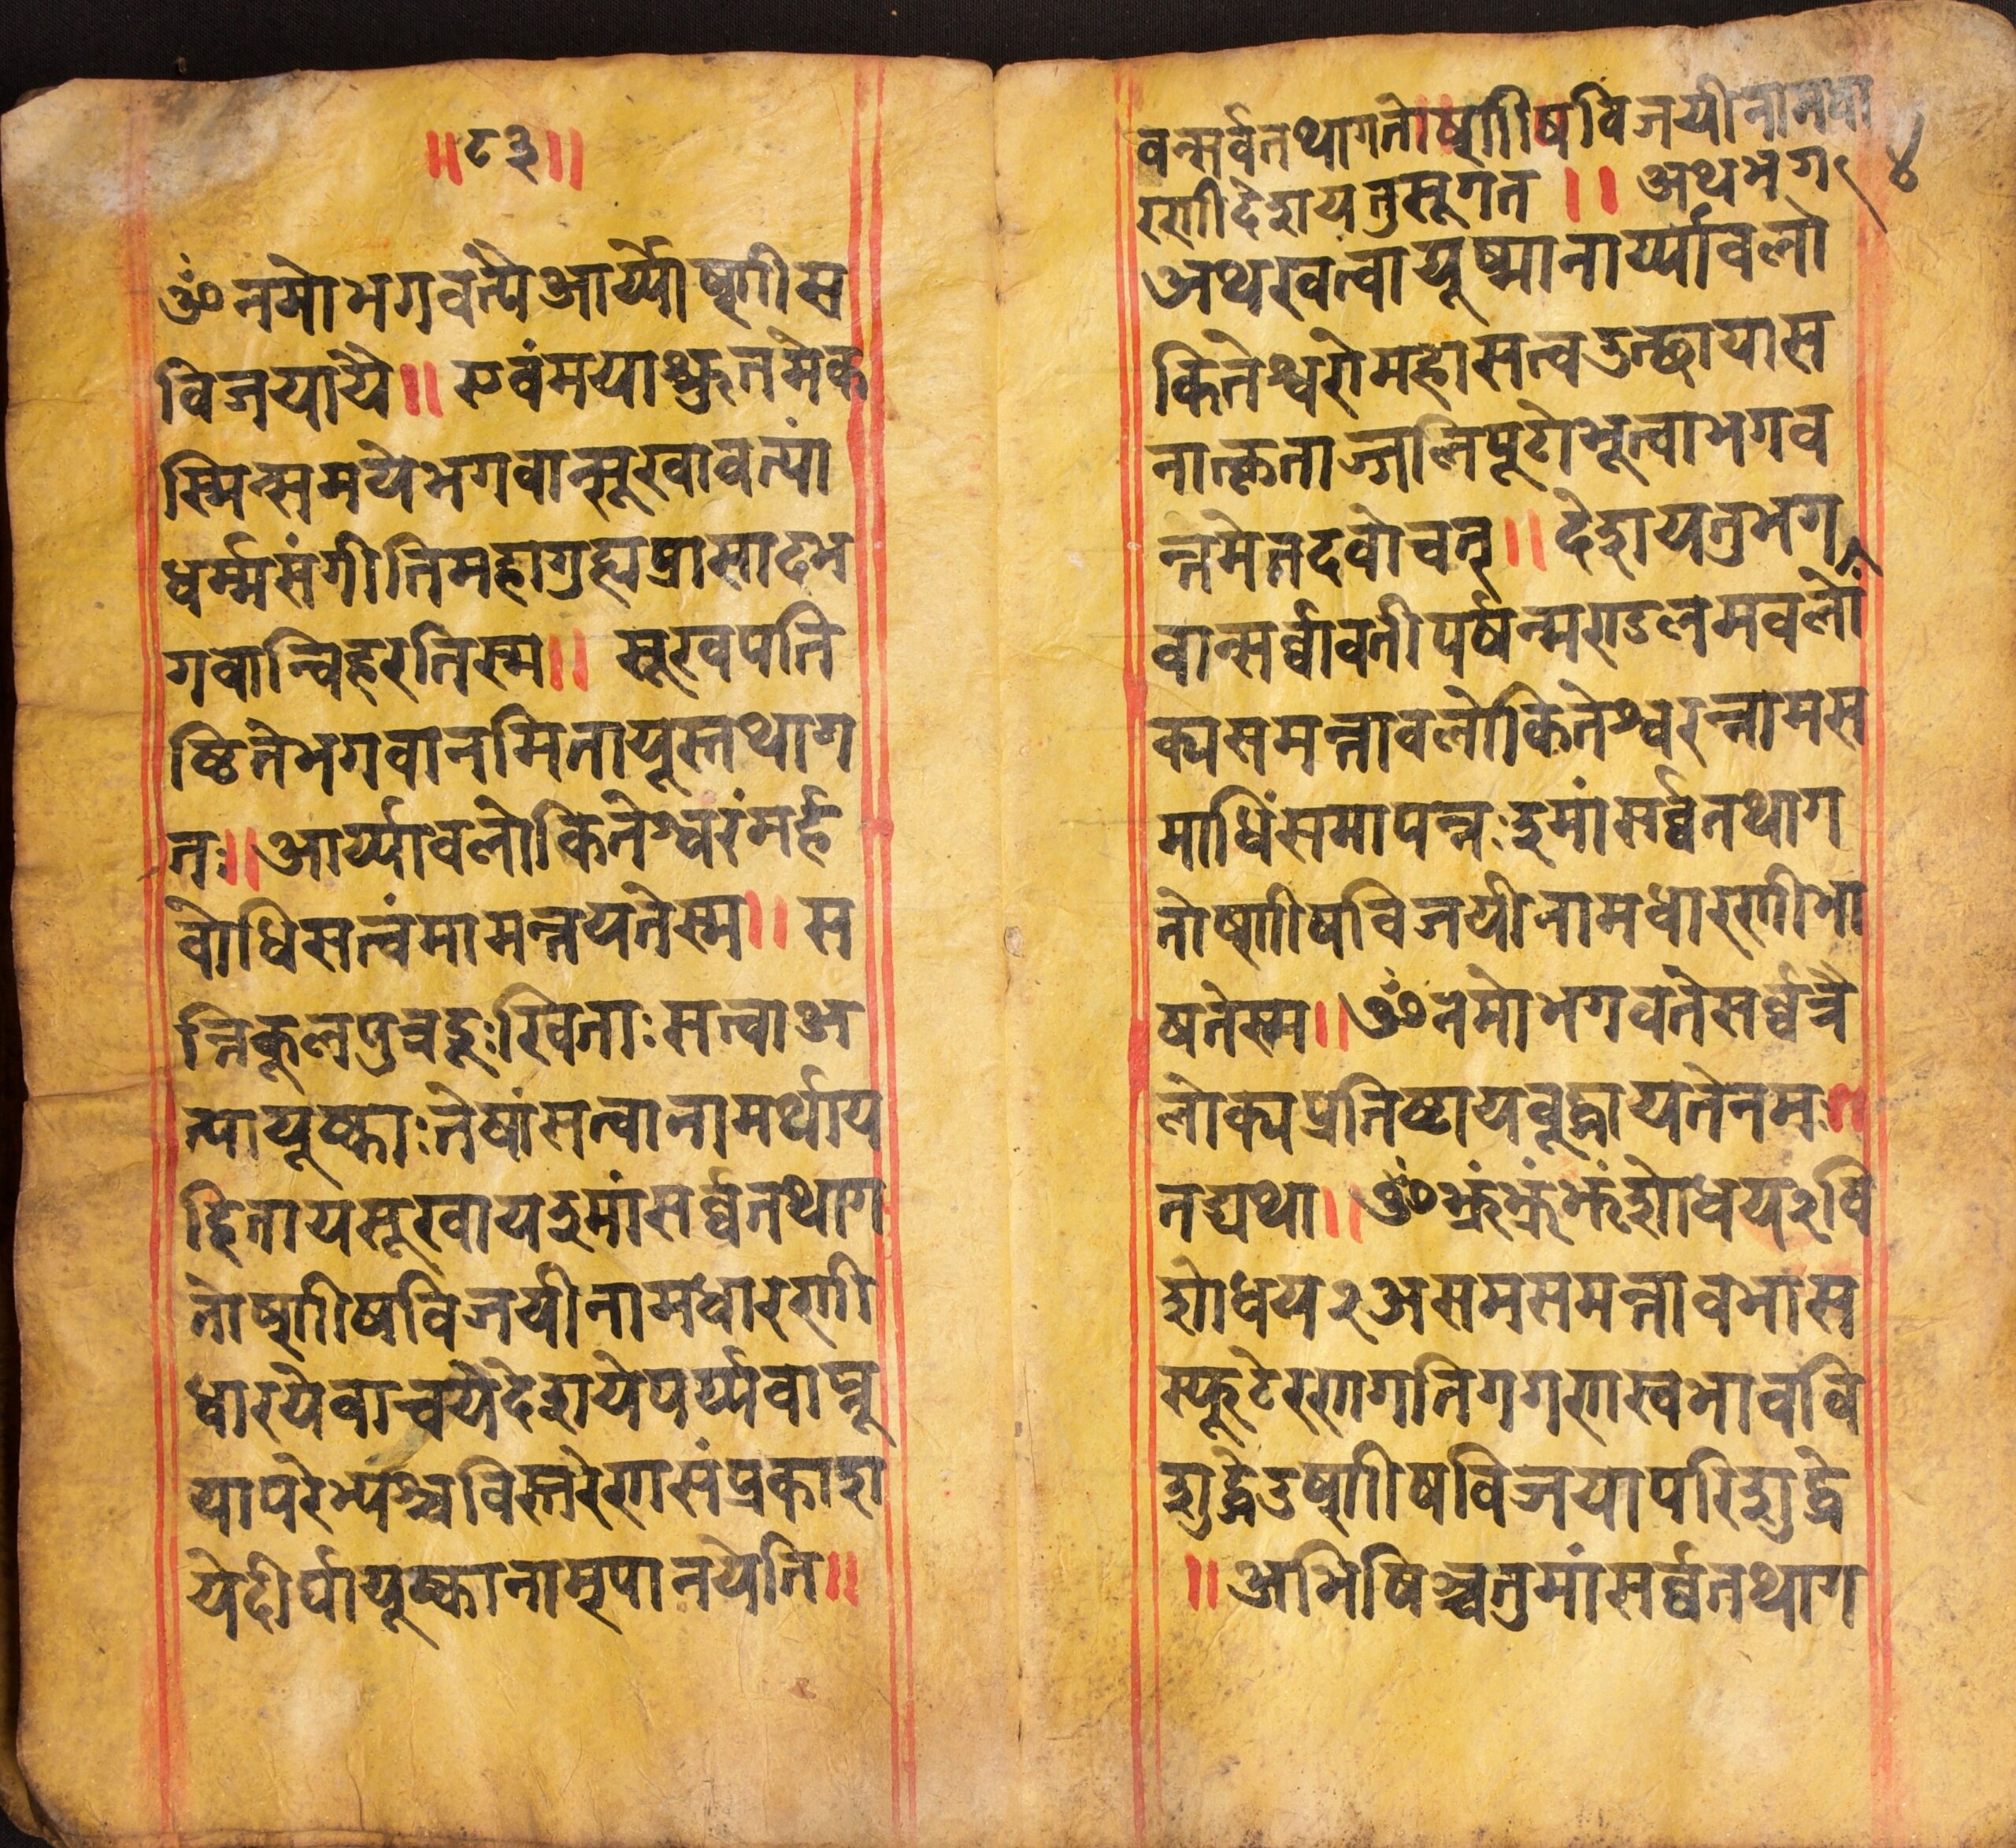 ॥८३॥
ॐ नमो भगवत्यै आर्य्योष्णीस
विजयायै ॥ एवंमयाश्रुतमेक
स्मिन्समये भगवान्सूखावत्यां
धर्म्मसंगीतिमहागुह्यप्रासादभ
गवान्विहरतिस्म ॥ सूखपति
ष्ठिते भगवानमितायूस्तथाग
तः ॥ आर्य्यावलोकितेश्वरंमर्ह
बोधिसत्वंमामन्त्रयतेस्म ॥ स
न्तिकूलपुत्रदुःखिताः सत्वाअ
ल्पायूष्काः तेषांसत्वानामर्थाय
हितायसूखायइमांसर्व्वतथाग
तोष्णीषविजयीनामधारणी
धारयेवाचयेदेशयेपर्य्यवाप्नू
यापरेभ्यश्चविस्तरेणसंप्रकाश
येदीर्घायूष्कानामूपानयेति ॥
वन्सर्वतथागतोष्णीषविजयीनामधा
रणीदेशयतुसूगत ॥ अथभग ४
अथखत्वायूष्मानार्य्यावलो
कितेश्वरोमहासत्वउत्थायास
नात्कृताञ्जलिपूटोभूत्वाभगव
न्तमेतदवोचत् ॥ देशयतुभग
वान्सर्व्वावतीपर्षन्मण्डलमवलो
क्यसमन्तावलोकितेश्वरन्नामस
माधिंसमापन्नः इमांसर्व्वतथाग
तोष्णीषविजयीनामधारणीभा
षतेस्म ॥ ॐ नमोभगवतेसर्व्वत्रै
लोक्यप्रतिष्ठायबूद्धायतेनमः ॥
तद्यथा ॥ ॐ भ्रूंभ्रूंभ्रूंशोधय२वि
शोधय२असमसमन्तावभास
स्फूटेरणगतिगगणस्वभाववि
शुद्धेउष्णीषविजयापरिशुद्धे
॥ अभिषिञ्चतुमांसर्व्वतथाग